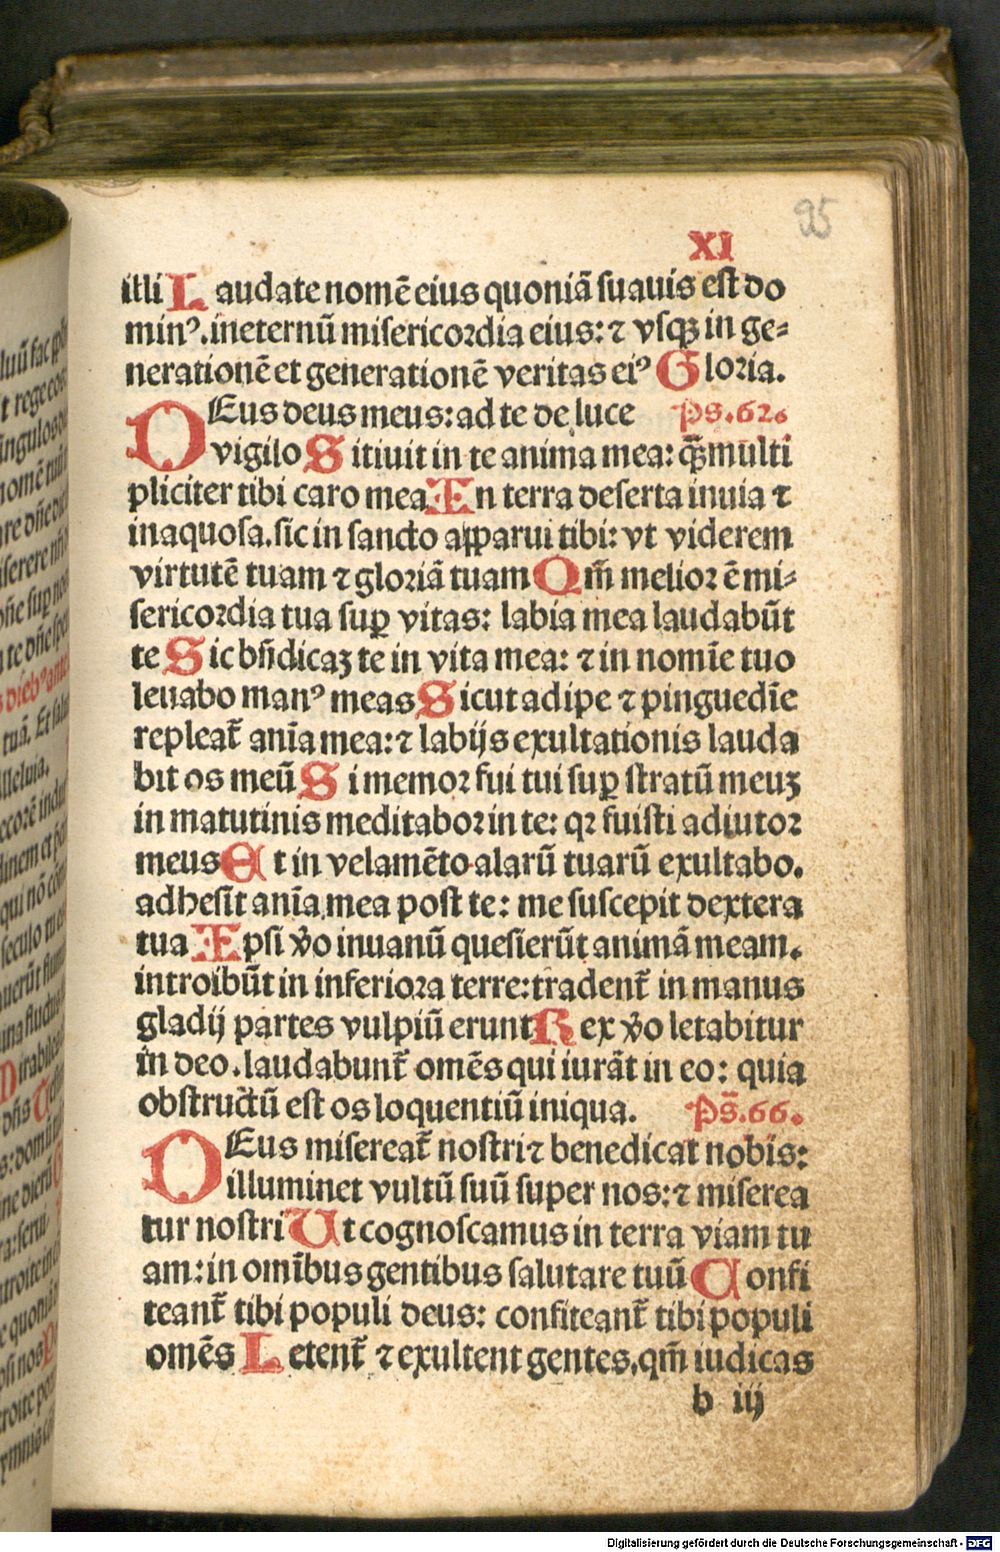 95
XI
illi Laudate nomē eius quoniā suauis est do
minꝰ. ineternū misericordia eius: ⁊ vsqꝫ in ge⸗
nerationē et generationē veritas eiꝰ Gloria.
DEus deus meus: ad te de luce ps. 62.
vigilo Sitiuit in te anima mea: q̄ꝫ multi
pliciter tibi caro mea In terra deserta inuia ⁊
inaquosa. sic in sancto apparui tibi: vt viderem
virtutē tuam ⁊ gloriā tuam Qm̄ melior ē mi⸗
sericordia tua suꝑ vitas: labia mea laudabūt
te Sic bn̄dicaꝫ te in vita mea: ⁊ in nomīe tuo
leuabo manꝰ meas Sicut adipe ⁊ pinguedīe
repleat᷑ anīa mea: ⁊ labijs exultationis lauda
bit os meū Si memor fui tui suꝑ stratū meuꝫ
in matutinis meditabor in te: qꝛ fuisti adiutor
meus Et in velamēto alarū tuarū exultabo.
adhesīt anīa mea post te: me suscepit dextera
tua Ipsi v̊o inuanū quesierūt animā meam.
introibūt in inferiora terre: tradent᷑ in manus
gladij partes vulpiū erunt Rex v̊o letabitur
in deo. laudabunt᷑ omēs qui iurāt in eo: quia
obstructū est os loquentiū iniqua. Ps̄. 66.
DEus misereat᷑ nostri ⁊ benedicat nobis:
illuminet vultū suū super nos: ⁊ miserea
tur nostri Ut cognoscamus in terra viam tu
am: in omībus gentibus salutare tuū Confi
teant᷑ tibi populi deus: confiteant᷑ tibi populi
omēs Letent᷑ ⁊ exultent gentes. qm̄ iudicas
b iij
Digitalisierung gefördert durch die Deutsche Forschungsgemeinschaft - DFG